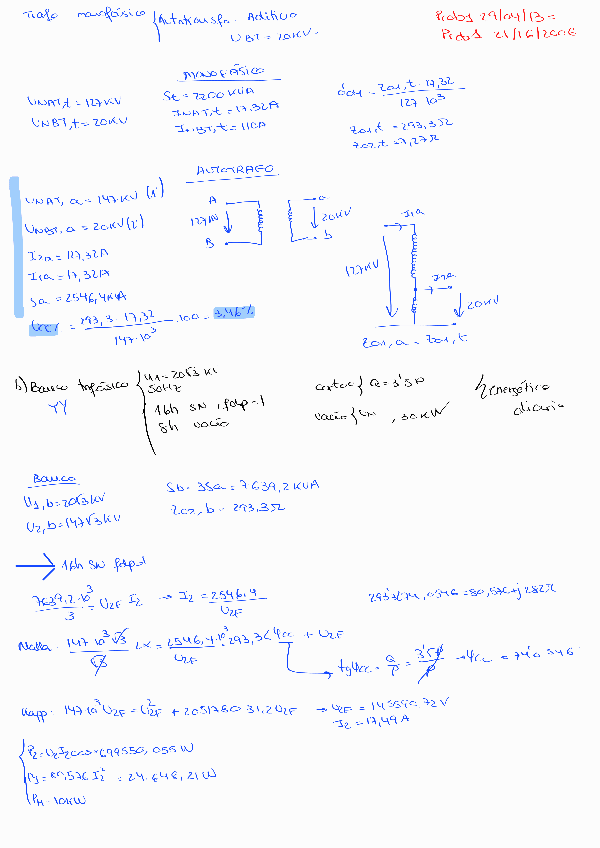 Trafo monofásico { Autotransfo. Aditivo
UBT = 20KV.
Prob1 29/04/13 =
Prob 1 21/16/2006
MONOFÁSICO
UNAT,t = 127KV
UNBT,t = 20KV
St = 2200 KVA
INAT,t = 17.32A
INBT,t = 110A
0'04 = Zcc1,t · 17,32 / 127·10³
Zcc1,t = 293,3Ω
Zcc2,t = 7,27Ω
AUTOTRAFO
UNAT, a = 147KV (1')
UNBT, a = 20KV (2')
I2a = 127,32A
I1a = 17,32A
Sa = 2546,4KVA
= 293,3 · 17,32 / 147·10³ · 100 = 3,46%
A
B
127KV
a
b
20KV
I1a
127KV
I2a
20KV
Zcc1, a = Zcc1, t
b) Banco trifásico { U1 = 20√3 KV
50Hz
YY
16h SN, fdp=1
8h vacío
cortoc { Q = 3'5P
vacío { UN, 30KW
Energético
diario
Banco
U1,b = 20√3KV
U2,b = 147√3KV
Sb = 3Sa = 7639,2 KVA
Zcc, b = 293,3Ω
→ 16h SN fdp=1
7639,2·10³ / 3 = U2F I2 → I2 = 2546,4 / U2F
293'3∠74,0546 = 80,576 + j 282Ω
Malla: 147·10³√3 / √3 ∠α = 2546,4·10³ / U2F · 293,3∠φcc + U2F
tgφcc = Q/P = 3'5P/P → φcc = 74'0546
Kapp: 147·10³ U2F = U²2F + 205178031,2U2F → U2F = 145590,72V
I2 = 17,49A
P2 = U2I2cosφ
PJ = 80,576 I2² = 24.646,21W
PM = 10KW